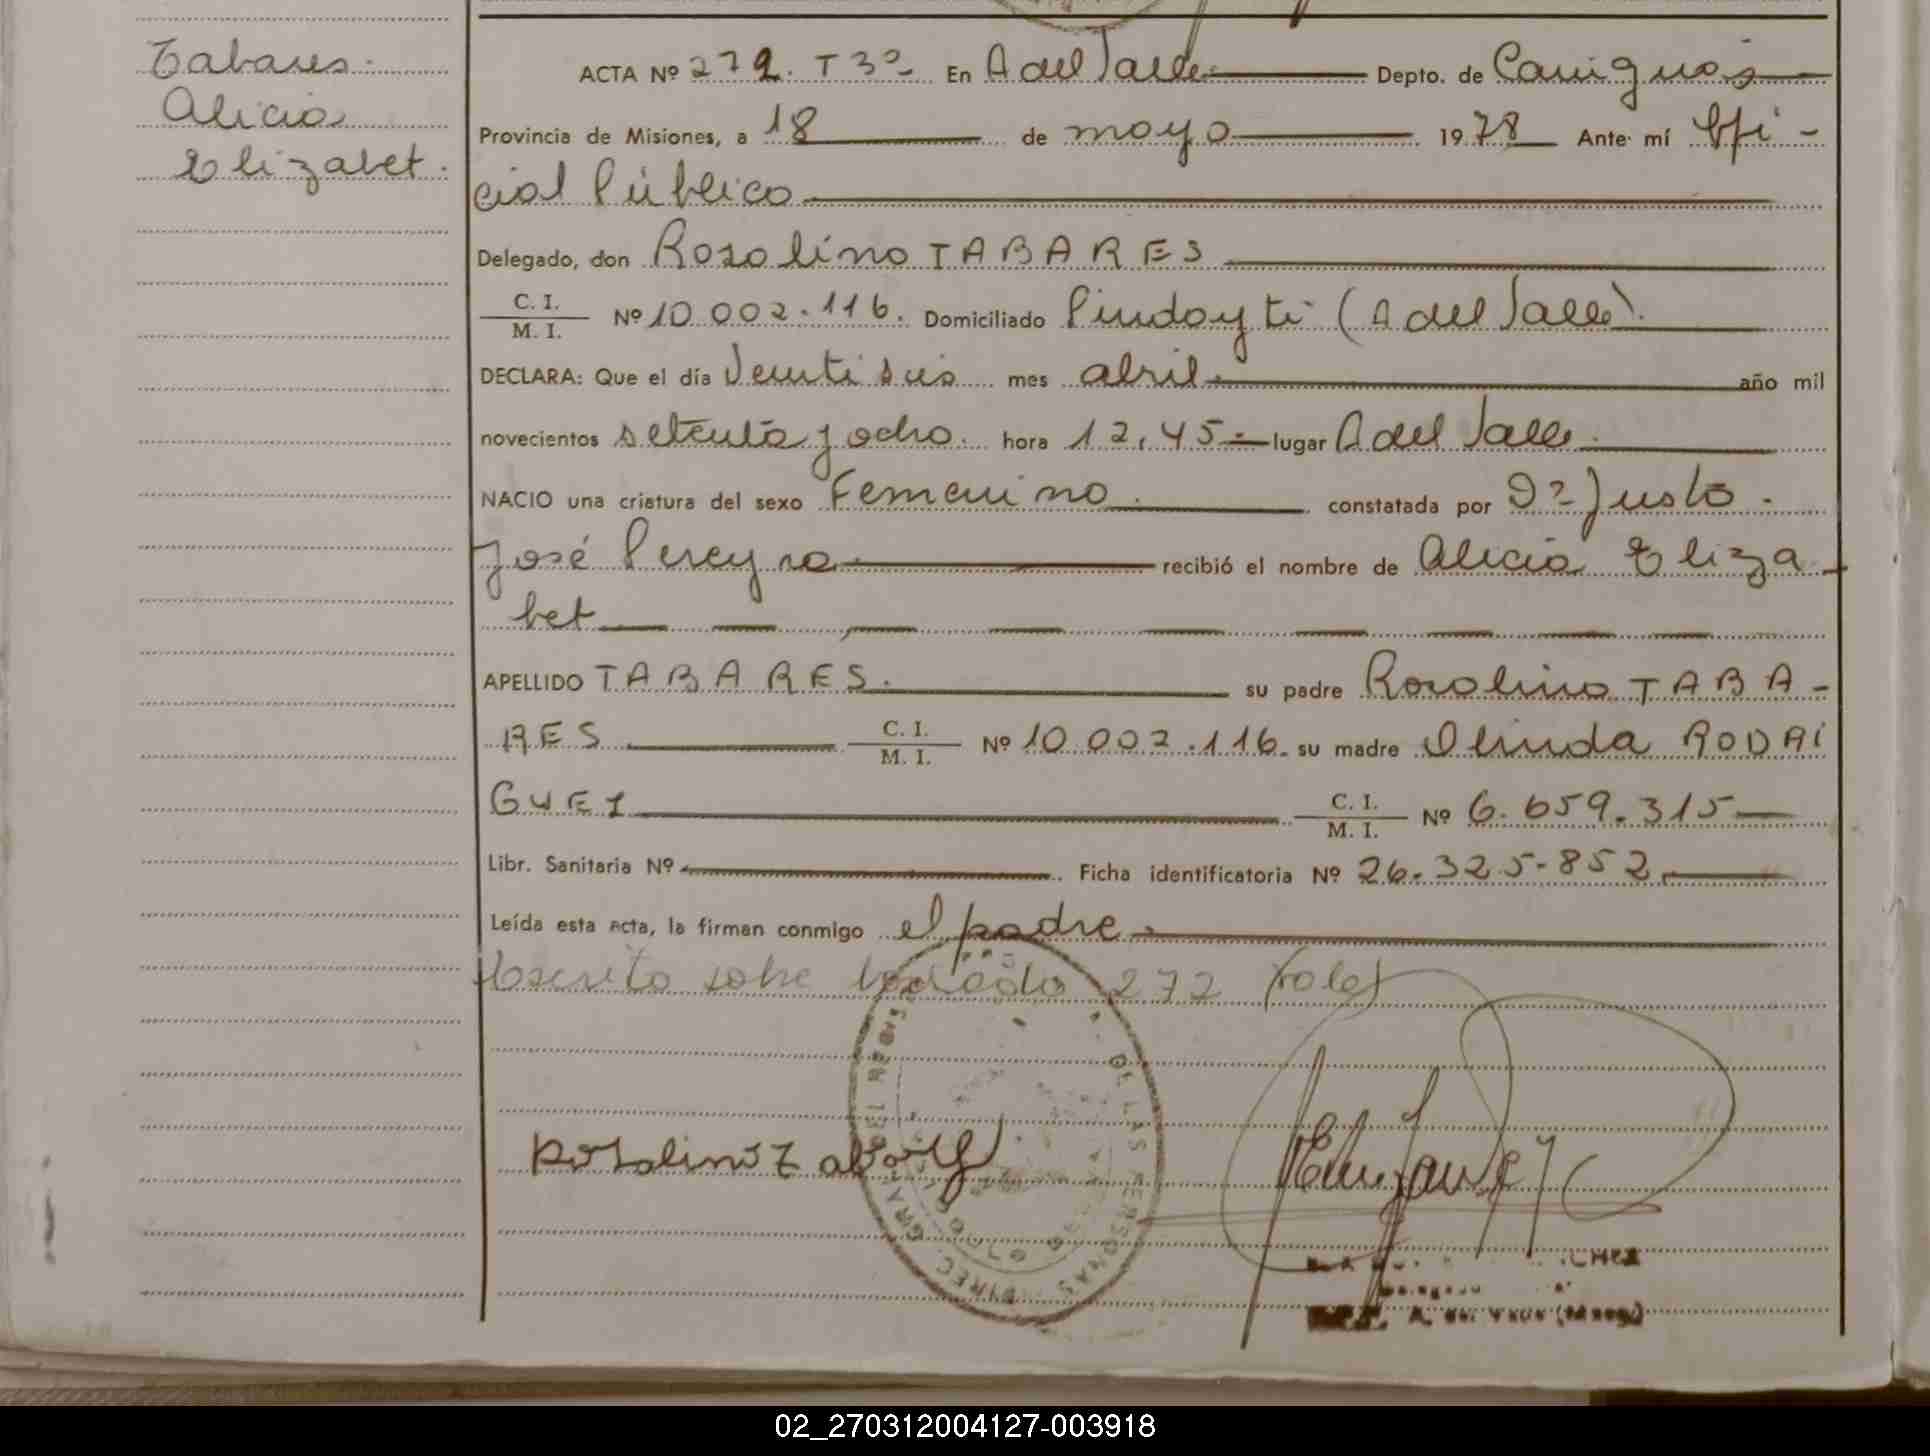 Tabares.
Alicia
Elizabet.
ACTA Nº 272. T 3º En A del Valle Depto. de Cainguás
Provincia de Misiones, a 18 de mayo 1978 Ante mí Ofi-
cial Público
Delegado, don Rosolino TABARES
C. I. / M. I. Nº 10.002.116. Domiciliado Pindoyti (A del Valle).
DECLARA: Que el día Veintiseis mes abril. año mil
novecientos setenta y ocho. hora 12,45 lugar A del Valle.
NACIO una criatura del sexo Femenino. constatada por Dº Justo.
José Pereyra recibió el nombre de Alicia Eliza-
bet
APELLIDO TABARES. su padre Rosolino TABA-
RES C. I. / M. I. Nº 10.002.116. su madre Olinda RODRI
GUEZ C. I. / M. I. Nº 6.659.315
Libr. Sanitaria Nº Ficha identificatoria Nº 26.325-852
Leída esta acta, la firman conmigo el padre.
Escrito sobre borrado 272 Vale
Rosolino Tabares
DE LAS PERSONAS
DIREC. GRAL
A. del Valle
02_270312004127-003918